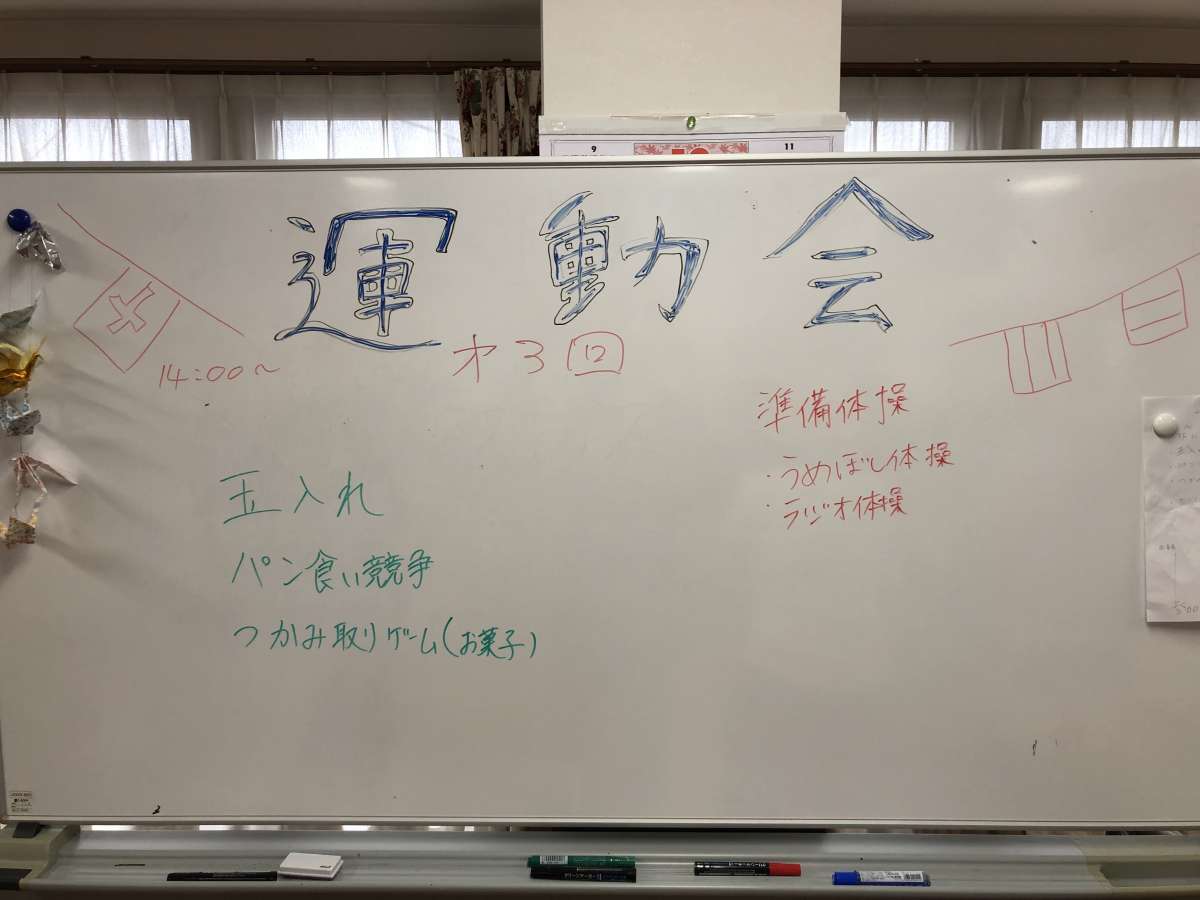 9
11
運動会
14:00～
才3回
準備体操
・うめぼし体操
・ラジオ体操
玉入れ
パン食い競争
つかみ取りゲーム(お菓子)